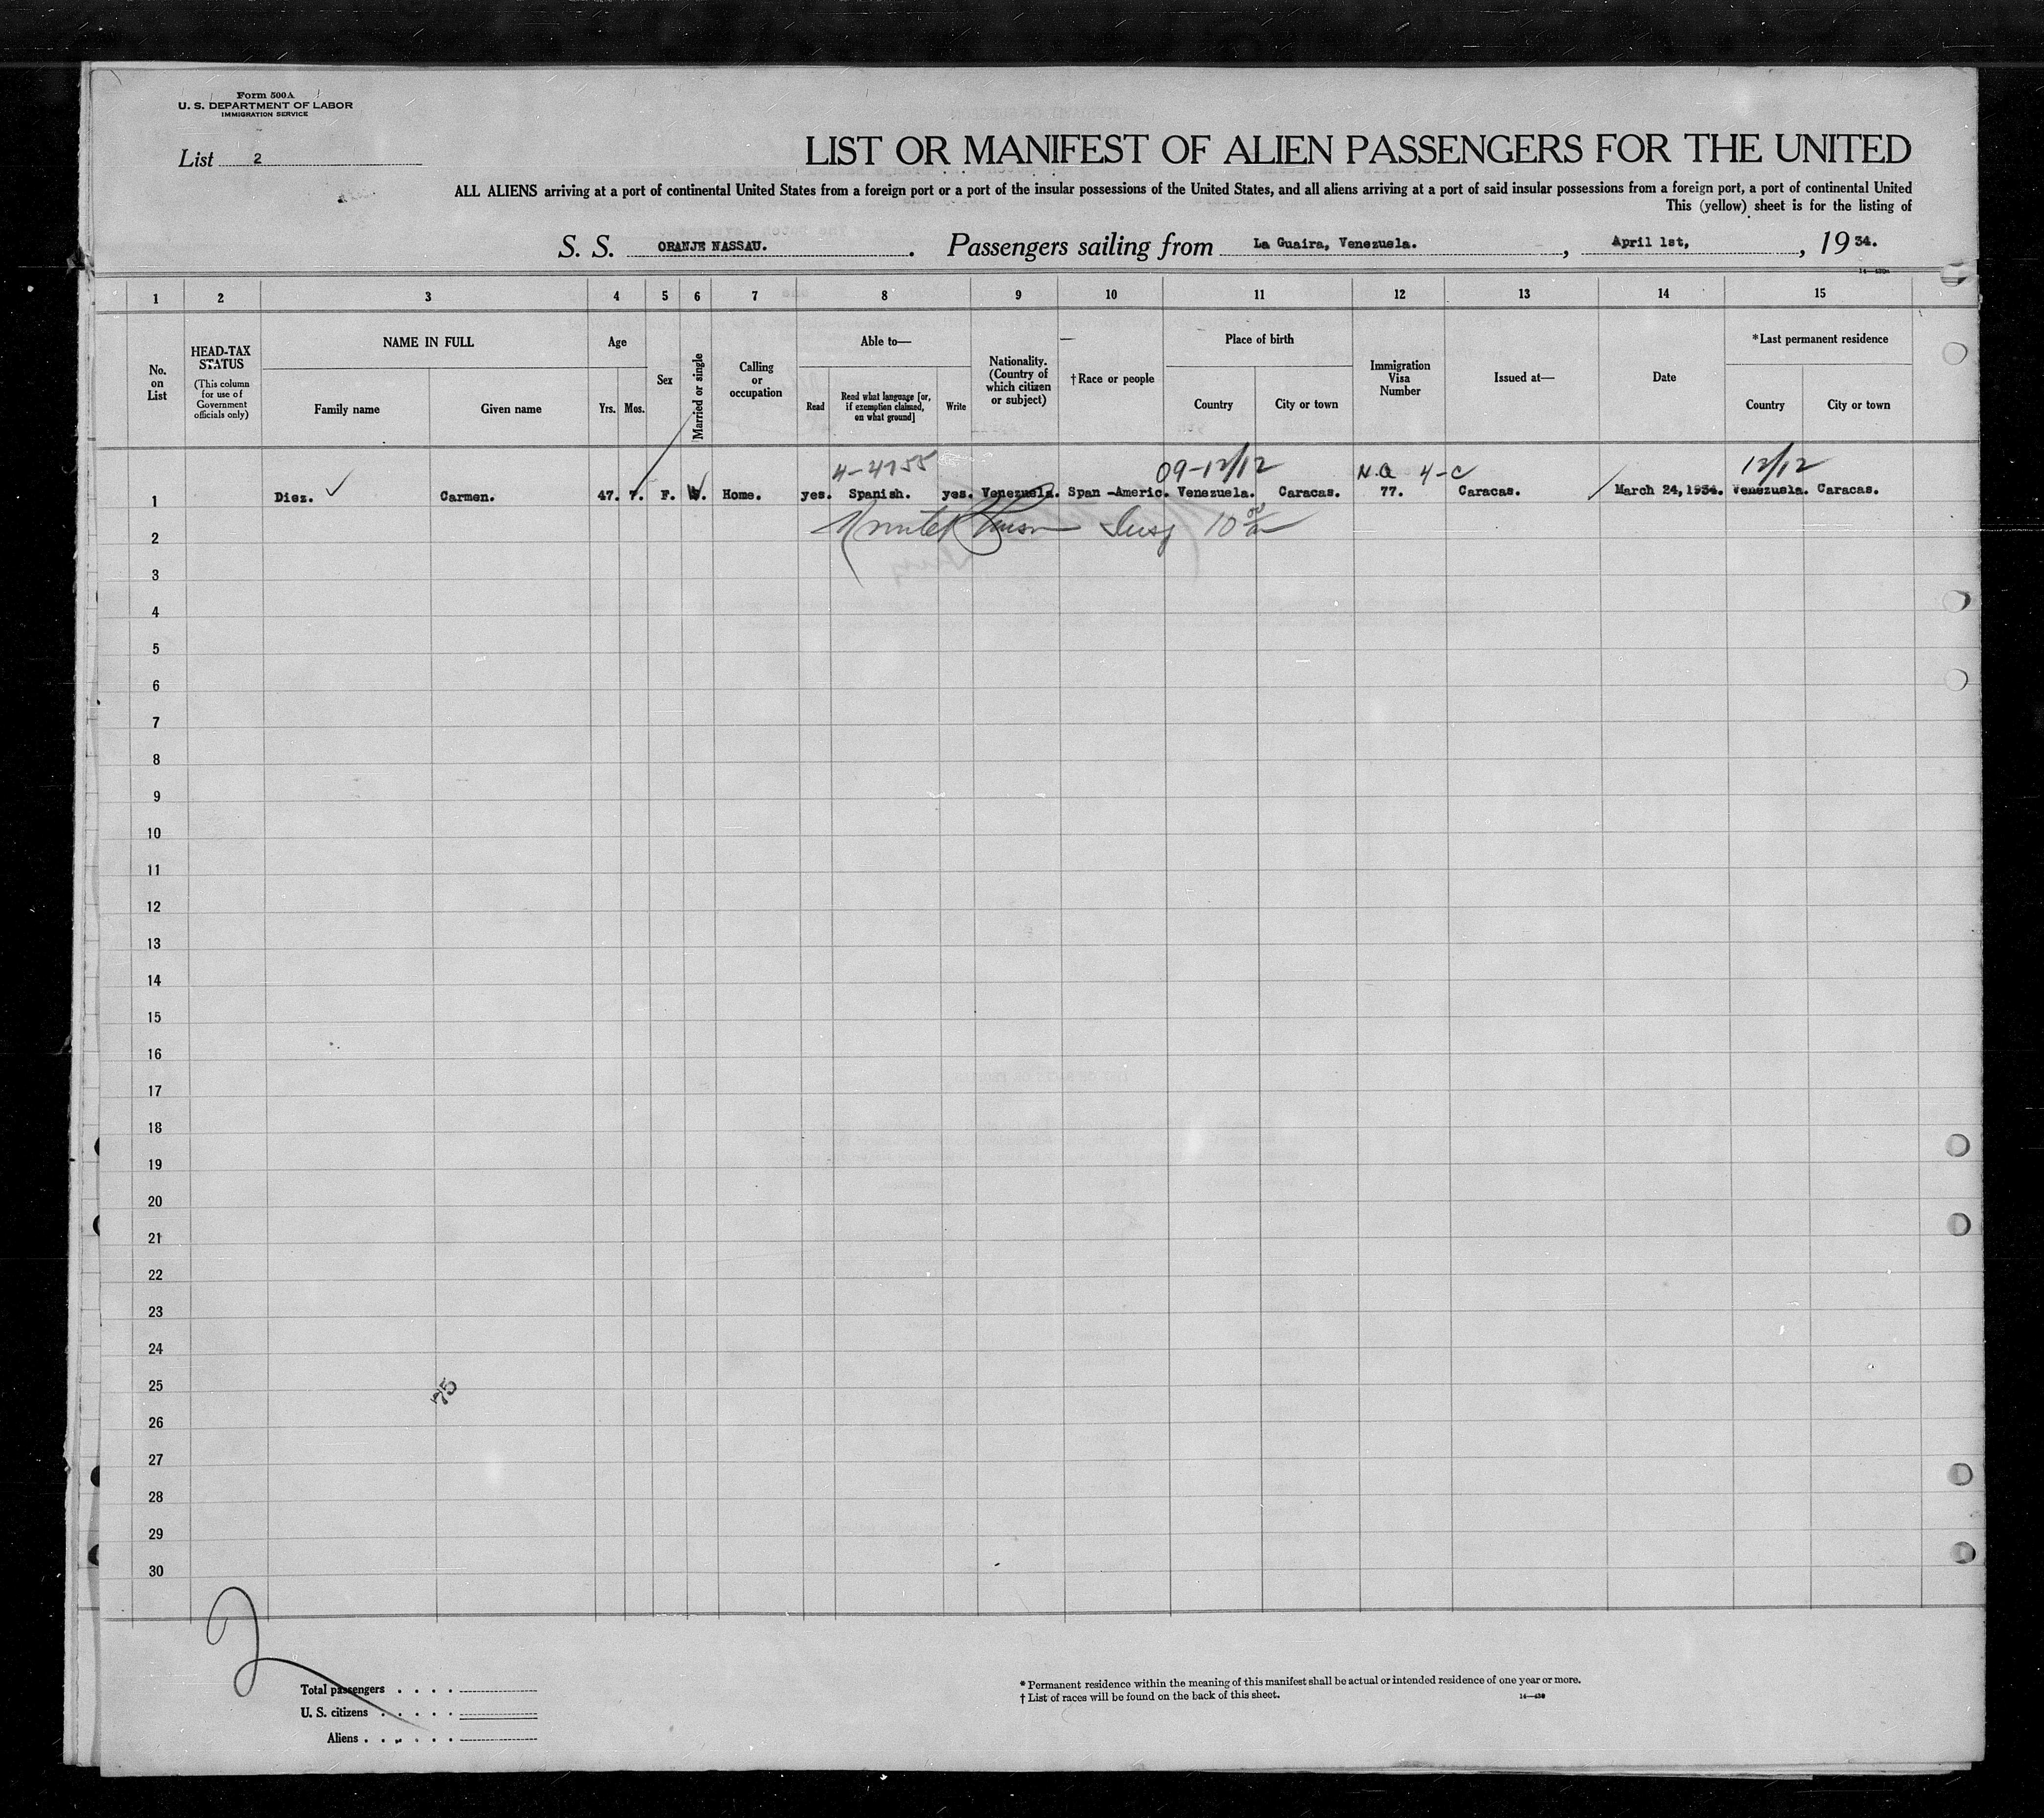 Form 500A
U. S. DEPARTMENT OF LABOR
IMMIGRATION SERVICE
List 2
LIST OR MANIFEST OF ALIEN PASSENGERS FOR THE UNITED
ALL ALIENS arriving at a port of continental United States from a foreign port or a port of the insular possessions of the United States, and all aliens arriving at a port of said insular possessions from a foreign port, a port of continental United
This (yellow) sheet is for the listing of
S. S. ORANJE NASSAU. Passengers sailing from La Guaira, Venezuela. , April 1st, , 19 34.
14—430a
1 2 3 4 5 6 7 8 9 10 11 12 13 14 15
No. on List
HEAD-TAX STATUS
(This column for use of Government officials only)
NAME IN FULL
Family name Given name
Age
Yrs. Mos.
Sex
Married or single
Calling or occupation
Able to—
Read
Read what language [or, if exemption claimed, on what ground]
Write
Nationality. (Country of which citizen or subject)
†Race or people
Place of birth
Country City or town
Immigration Visa Number
Issued at—
Date
*Last permanent residence
Country City or town
4-4755 09-12/12 N.Q 4-C 12/12
1 Diez. ✓ Carmen. 47. 7. F. W. Home. yes. Spanish. yes. Venezuela. Span -Americ. Venezuela. Caracas. 77. Caracas. March 24,1934. Venezuela. Caracas.
2 Insp 10
3
4
5
6
7
8
9
10
11
12
13
14
15
16
17
18
19
20
21
22
23
24
25
75
26
27
28
29
30
2
Total passengers . . . .
U. S. citizens . . . . .
Aliens . . . . . .
* Permanent residence within the meaning of this manifest shall be actual or intended residence of one year or more.
† List of races will be found on the back of this sheet.
14—430